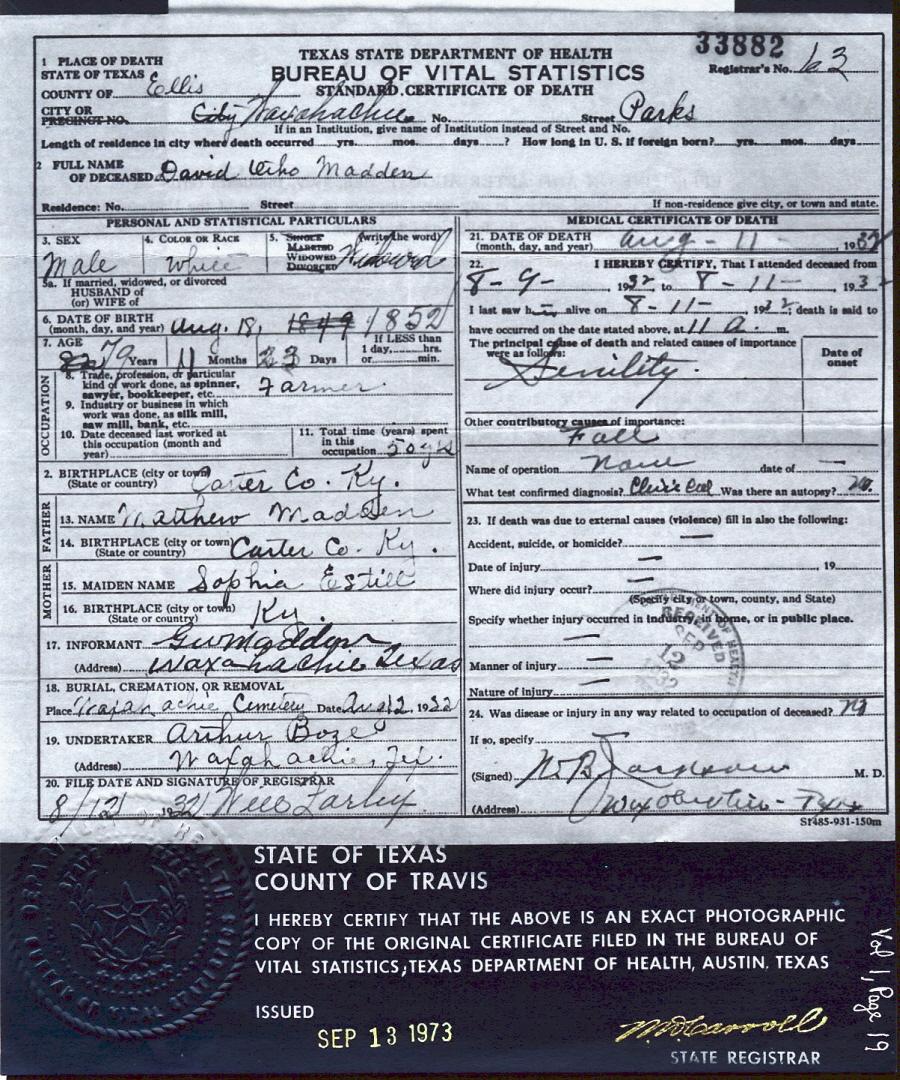 33882
TEXAS STATE DEPARTMENT OF HEALTH
BUREAU OF VITAL STATISTICS
STANDARD CERTIFICATE OF DEATH
Registrar's No. 63
1 PLACE OF DEATH
STATE OF TEXAS
COUNTY OF Ellis
CITY OR PRECINCT NO. City Waxahachie No. Street Parks
If in an Institution, give name of Institution instead of Street and No.
Length of residence in city where death occurred yrs. mos. days? How long in U. S. if foreign born? yrs. mos. days
2 FULL NAME
OF DECEASED David Madden
Residence: No. Street If non-residence give city, or town and state.
PERSONAL AND STATISTICAL PARTICULARS
3. SEX
Male
4. COLOR OR RACE
White
5. SINGLE MARRIED WIDOWED DIVORCED (write the word)
Widowed
5a. If married, widowed, or divorced
HUSBAND of
(or) WIFE of
6. DATE OF BIRTH
(month, day, and year) Aug. 18, 1849 1852
7. AGE
79 Years 11 Months 23 Days
If LESS than
1 day, hrs.
or min.
OCCUPATION
8. Trade, profession, or particular
kind of work done, as spinner,
sawyer, bookkeeper, etc. Farmer
9. Industry or business in which
work was done, as silk mill,
saw mill, bank, etc.
10. Date deceased last worked at
this occupation (month and
year)
11. Total time (years) spent
in this
occupation 50 yrs
2. BIRTHPLACE (city or town)
(State or country) Carter Co. Ky.
FATHER
13. NAME Matthew Madden
14. BIRTHPLACE (city or town)
(State or country) Carter Co. Ky.
MOTHER
15. MAIDEN NAME Sophia Estill
16. BIRTHPLACE (city or town)
(State or country) Ky.
17. INFORMANT G W Madden
(Address) Waxahachie Texas
18. BURIAL, CREMATION, OR REMOVAL
Place Waxahachie Cemetery Date Aug 12, 1932
19. UNDERTAKER Arthur Boze
(Address) Waxahachie, Tex.
20. FILE DATE AND SIGNATURE OF REGISTRAR
8/12 1932 Will Farley
MEDICAL CERTIFICATE OF DEATH
21. DATE OF DEATH
(month, day, and year) Aug - 11 - 1932
22. I HEREBY CERTIFY, That I attended deceased from
8-9- 1932 to 8-11- 1932
I last saw h alive on 8-11- 1932; death is said to
have occurred on the date stated above, at 11 a. m.
The principal cause of death and related causes of importance
were as follows:
Date of
onset
Senility.
Other contributory causes of importance:
Fall
Name of operation None date of —
What test confirmed diagnosis? Clinical Was there an autopsy? No.
23. If death was due to external causes (violence) fill in also the following:
Accident, suicide, or homicide? —
Date of injury — 19
Where did injury occur? —
(Specify city or town, county, and State)
Specify whether injury occurred in industry, in home, or in public place.
—
Manner of injury —
Nature of injury —
RECEIVED
SEP 12 1932
24. Was disease or injury in any way related to occupation of deceased? No
If so, specify
(Signed) W B Jackson M. D.
(Address) Waxahachie - Texas
S1485-931-150m
STATE OF TEXAS
COUNTY OF TRAVIS
I HEREBY CERTIFY THAT THE ABOVE IS AN EXACT PHOTOGRAPHIC
COPY OF THE ORIGINAL CERTIFICATE FILED IN THE BUREAU OF
VITAL STATISTICS, TEXAS DEPARTMENT OF HEALTH, AUSTIN, TEXAS
ISSUED
SEP 13 1973
STATE REGISTRAR
Vol 1, Page 19